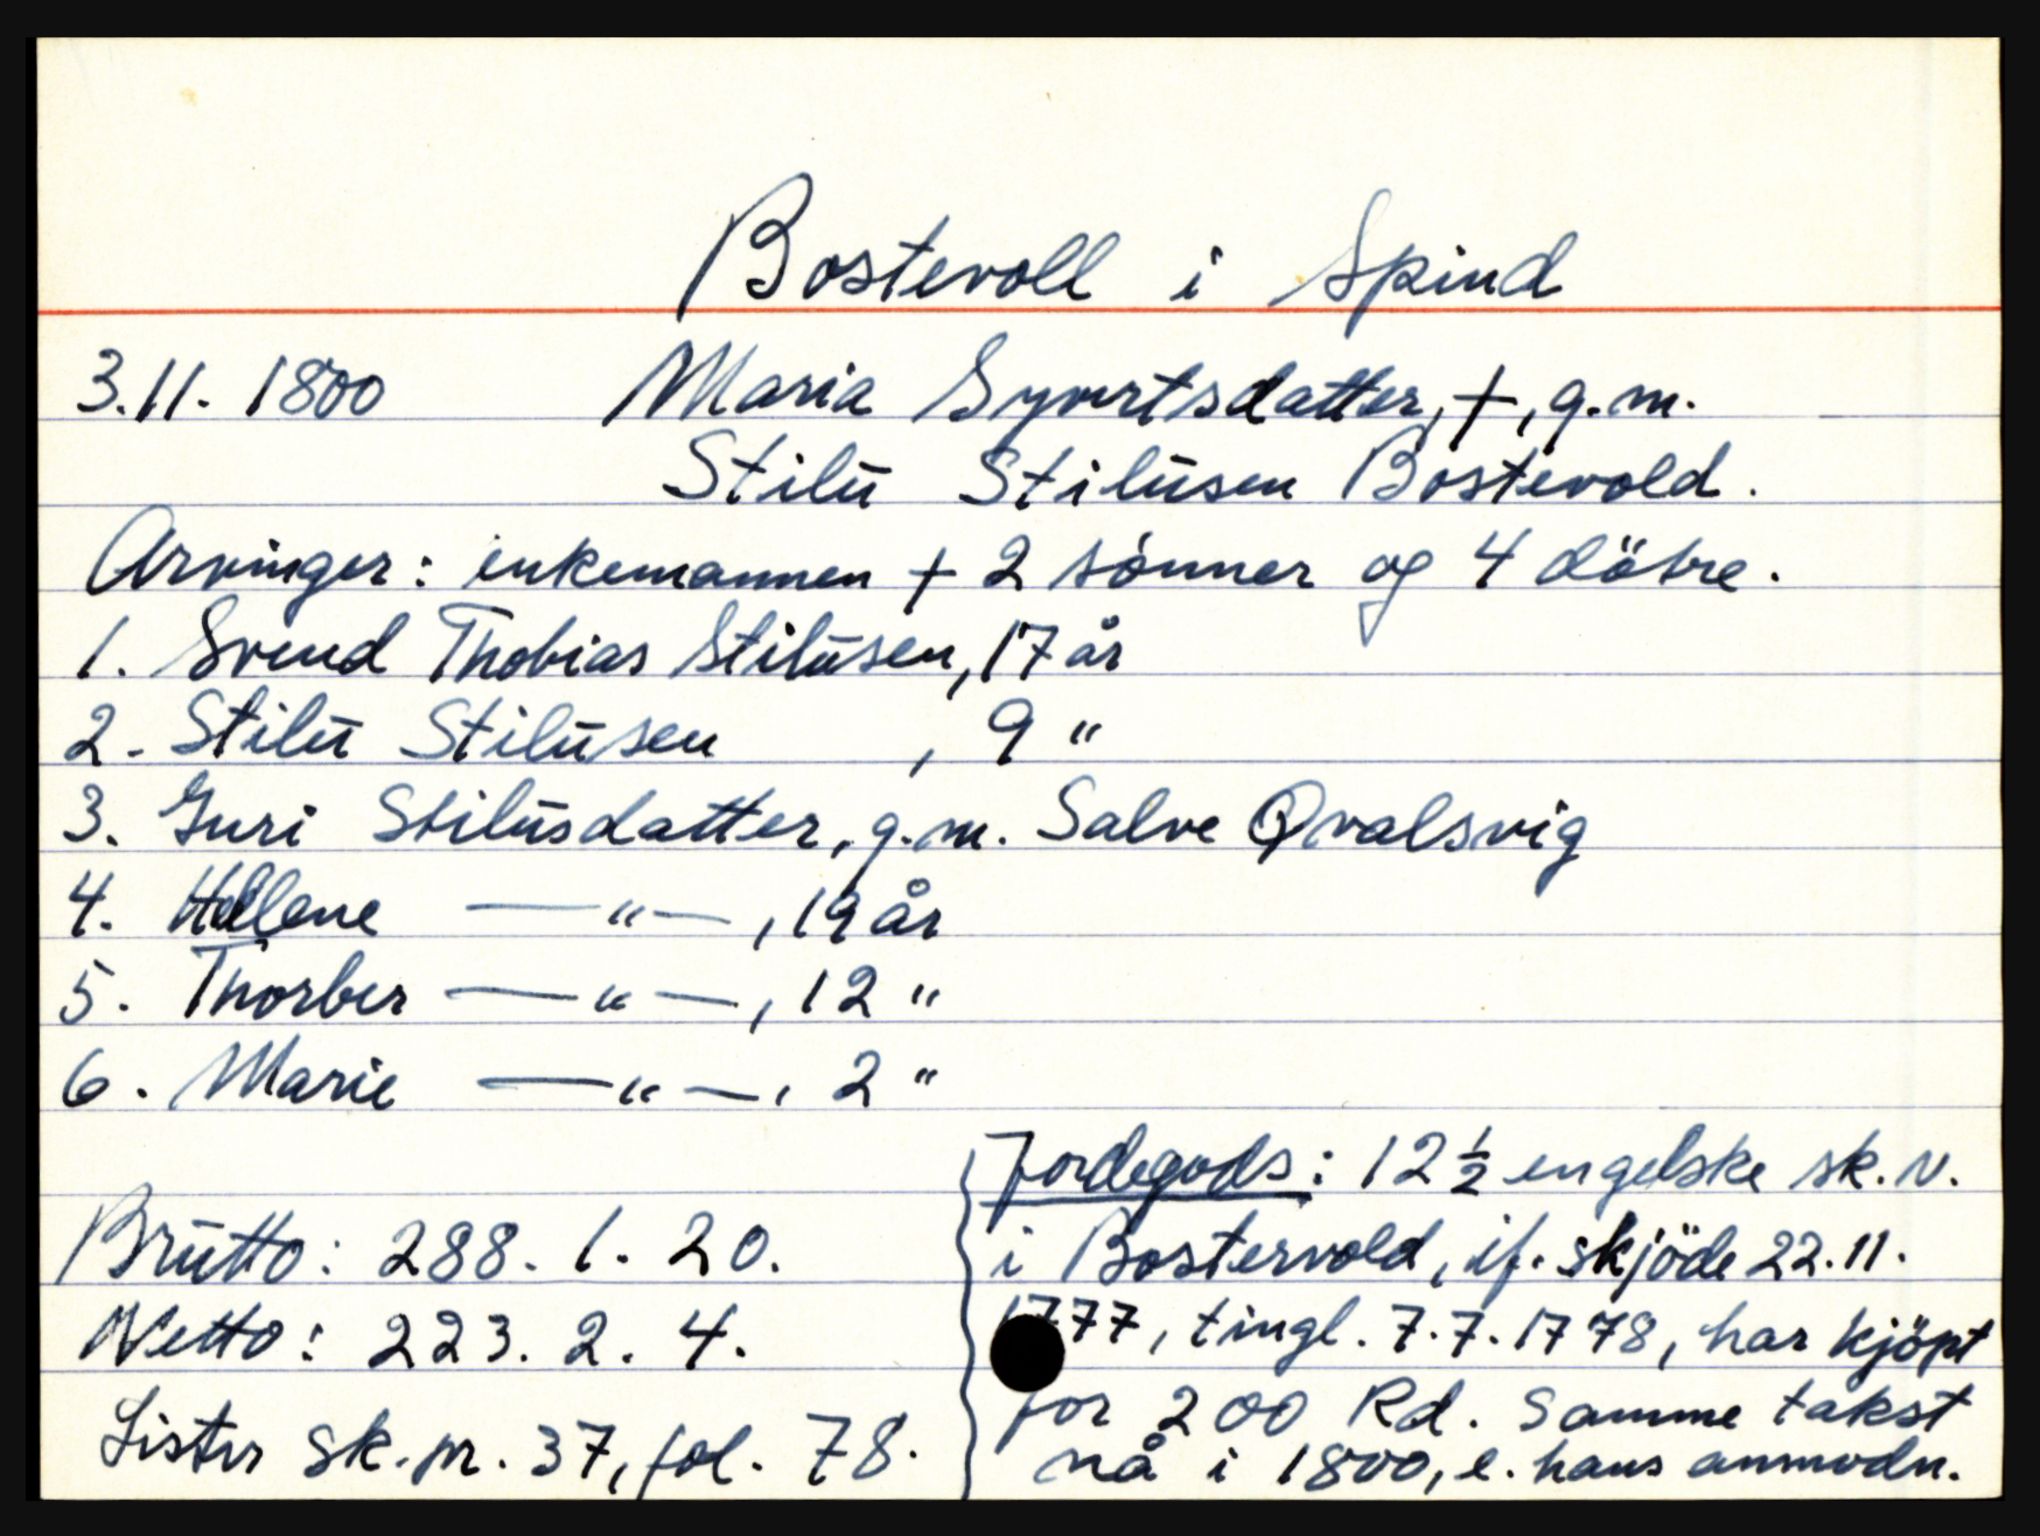 Bostevoll i Spind
3.11. 1800 Maria Syvertsdatter, +, g.m.
Stilu Stilusen Bostevold.
Arvinger: enkemannen + 2 sönner og 4 döbre.
1. Svend Thobias Stilusen, 17 år
2. Stilu Stilusen , 9 "
3. Guri Stilusdatter, g.m. Salve Qvalsvig
4. Hellene — " — , 19 år
5. Thorber — " — , 12 "
6. Marie — " — , 2 "
Brutto: 288. 1. 20.
Netto: 223. 2. 4.
Lister sk.pr. 37, fol. 78.
Jordegods: 12 1/2 engelske sk. v.
i Bostervold, if. skjöde 22.11.
1777, tingl. 7.7.1778, har kjöpt
for 200 Rd. Samme takst
nå i 1800, e. hans anmodn.